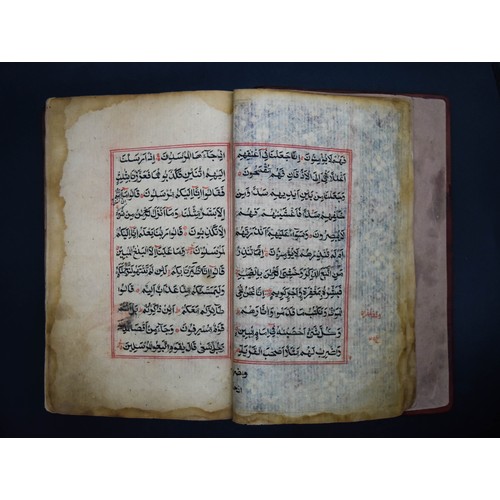 فهم لا يؤمنون انا جعلنا في اعناقهم
اغلالا فهي الى الاذقان فهم مقمحون
وجعلنا من بين ايديهم سدا ومن
خلفهم سدا فاغشيناهم فهم
لا يبصرون وسواء عليهم ءانذرتهم
ام لم تنذرهم لا يؤمنون انما تنذر
من اتبع الذكر وخشي الرحمن بالغيب
فبشره بمغفرة واجر كريم انا نحن نحي
الموتى ونكتب ما قدموا واثارهم
وكل شيء احصيناه في امام مبين
واضرب لهم مثلا اصحاب القرية
اذ جاءها المرسلون اذ ارسلنا
اليهم اثنين فكذبوهما فعززنا بثالث
فقالوا انا اليكم مرسلون قالوا ما انتم
الا بشر مثلنا وما انزل الرحمن من شيء ان انتم
الا تكذبون قالوا ربنا يعلم انا اليكم
لمرسلون وما علينا الا البلاغ المبين
قالوا انا تطيرنا بكم لئن لم تنتهوا لنرجمنكم
وليمسنكم منا عذاب اليم قالوا
طائركم معكم ائن ذكرتم بل انتم
قوم مسرفون وجاء من اقصا المدينة
رجل يسعى قال يا قوم اتبعوا المرسلين